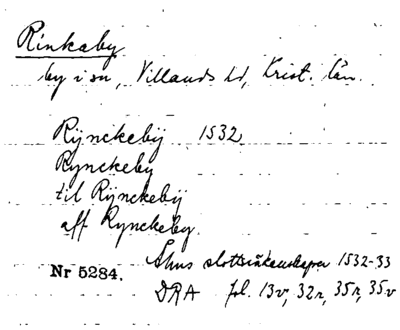 Rinkaby
by i sn, Villands hd, Krist. län.
Rÿnckebÿ 1532
Rynckeby
til Rÿnckebÿ
aff Rynckeby.
Åhus slottsräkenskaper 1532-33
Nr 5284.
DRA fol. 13v, 32r, 35r, 35v